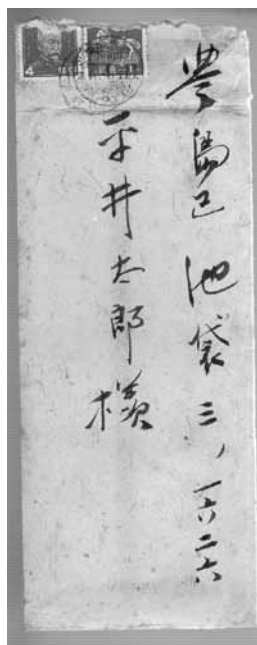 豊島区池袋三ノ一六二六
平井太郎様
4